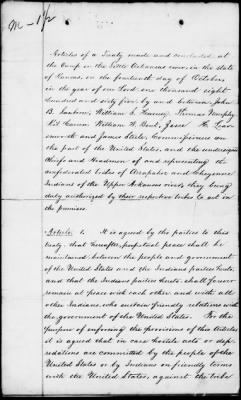 M-1/2
Articles of a Treaty made and concluded at
the Camp on the Little Arkansas river, in the state
of Kansas, on the fourteenth day of October,
in the year of our Lord, one thousand eight
hundred and sixty five, by and between John
B. Sanborn, William S. Harney, Thomas Murphy,
Kit Carson, William W. Bent, Jesse H. Leav-
enworth and James Steele, Commissioners on
the part of the United States, and the undersigned
Chiefs and Headmen of and representing the
confederated tribes of Arrapahoe and Cheyenne
Indians of the Upper Arkansas river, they being
duly authorized by their respective tribes to act in
the premises.
Article 1. It is agreed by the parties to this
treaty, that hereafter, perpetual peace shall be
maintained between the people and government
of the United States and the Indians parties hereto,
and that the Indians parties hereto, shall forever
remain at peace with each other, and with all
other Indians, who sustain friendly relations with
the government of the United States. For the
purpose of enforcing the provisions of this Article
it is agreed that in case hostile acts or dep-
redations are committed by the people of the
United States or by Indians on friendly terms
with the United States, against the tribe